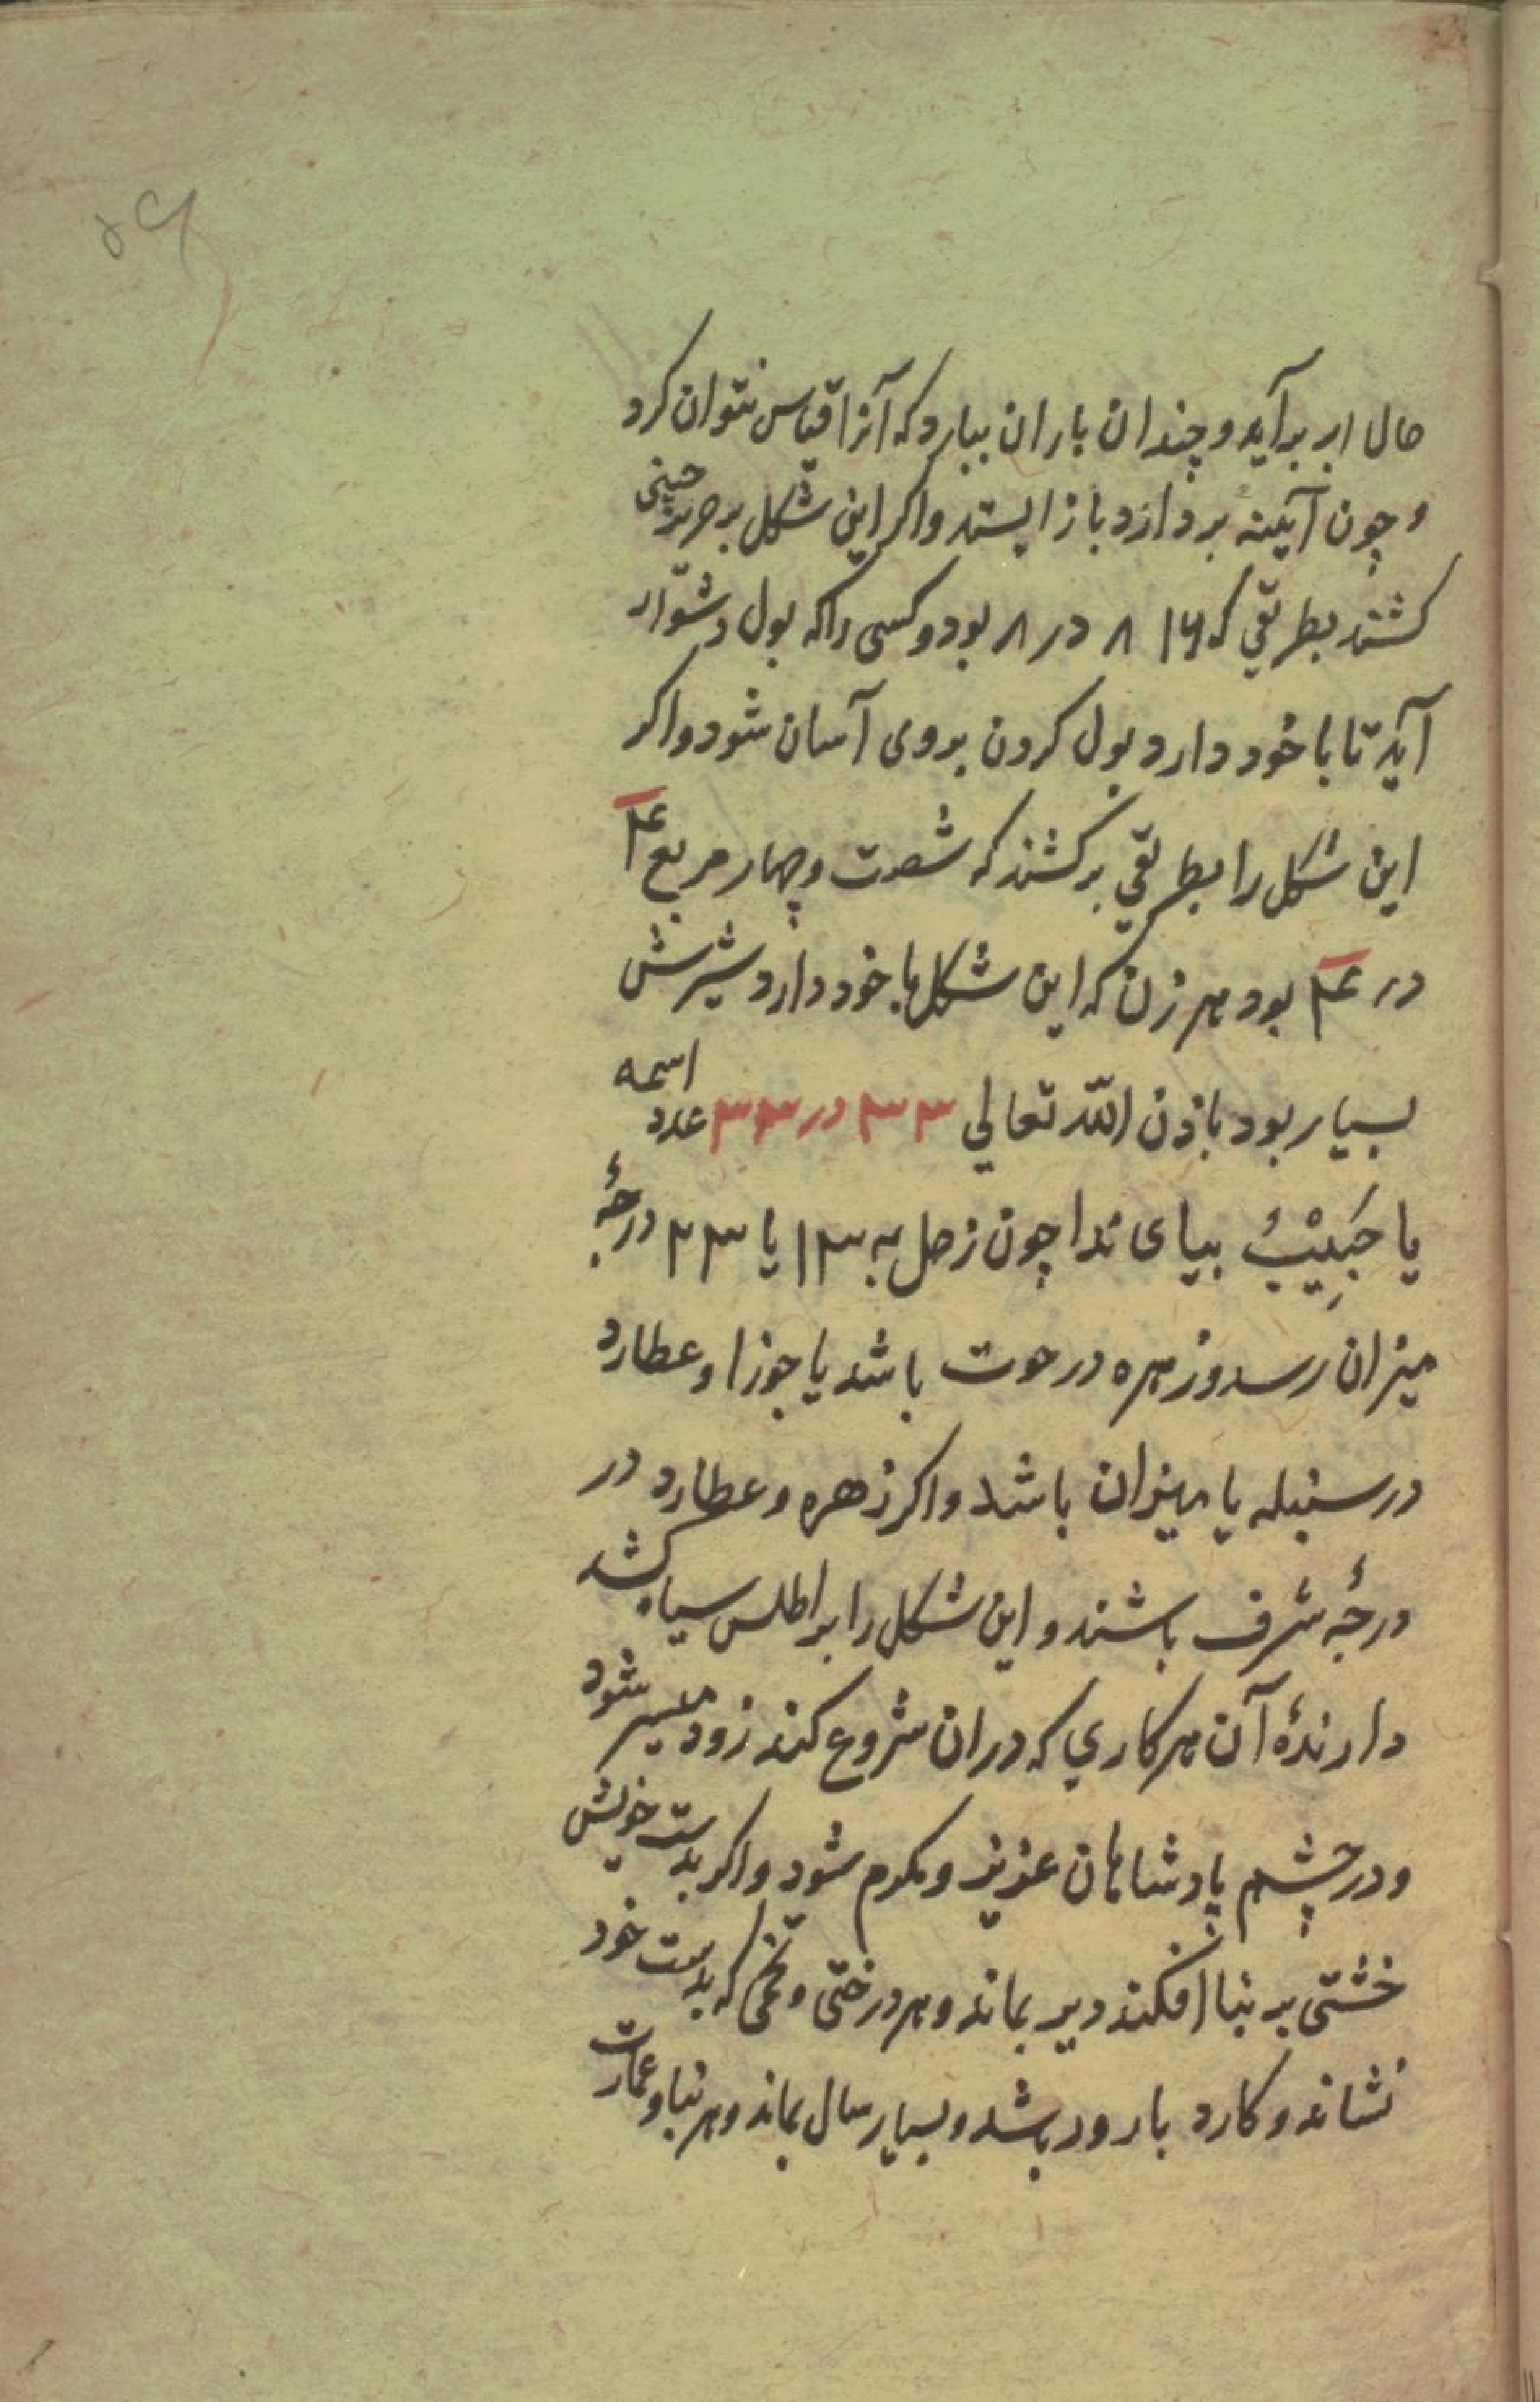 ۵۹
حال ابر برآید و چندان باران ببارد که آنرا قیاس نتوان کرد
و چون آینه بردارد باز ایستد و اکر این شکل بر حریر چینی
کشند بطریقی که ۸۱۶ در ۸ بود و کسی را که بول دشوار
آید تا با خود دارد بول کردن بروی آسان شود و اکر
این شکل را بطریقی برکشند که شصت و چهار مربع ۴۱
در ۴۱ بود هر زن که این شکل با خود دارد شیرش
بسیار بود باذن الله تعالی ۳۳ در ۳۳ عدد اسمه
یا حَبِیْبُ بیای ندا چون زحل به ۱۳ یا ۲۳ درجهٔ
میزان رسد و زهره در حوت باشد یا جوزا و عطارد
در سنبله یا میزان باشد و اکر زهره و عطارد در
درجهٔ شرف باشند و این شکل را بر اطلس سیاه کشد
دارندهٔ آن هر کاری که دران شروع کند زود میسر شود
و در چشم پادشاهان عزیز و مکرم شود و اکر بدست خویش
خشتی بر بنا افکند دیر بماند و هر درختی و تخمی که بدست خود
نشاند و کارد بارور باشد و بسیار سال بماند و هر بنا و عمارت